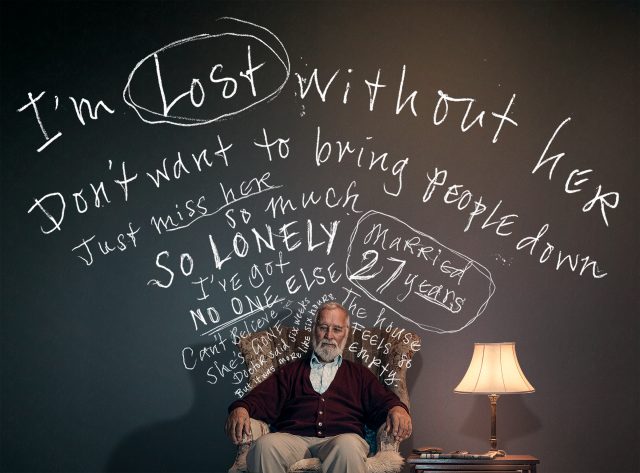 I'm Lost without her
Don't want to bring people down
Just miss her
so much
SO LONELY
I've got
NO ONE ELSE
married
27 years
Can't Believe
She's GONE
Doctor said six weeks
But it was more like six hours.
The house
FEELS so
empty.